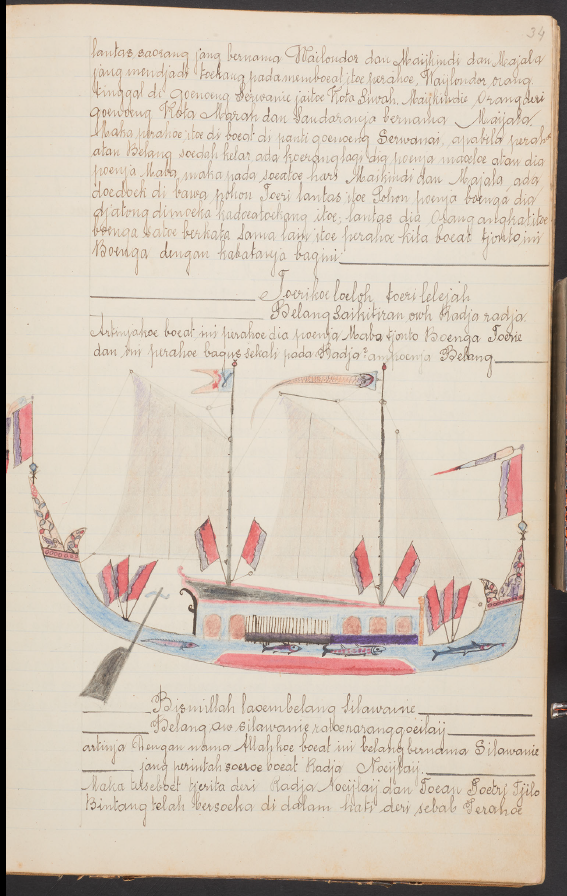 34
lantas saorang jang bernama Waijloundor dan Maijkindi dan Majala
jang mendjadi toekang pada memboeat itoe perahoe, Waijloundor orang
tinggal di goenoeng Serwanie jaitoe Kota Siwah, Maijkindie, orang deri
goenoeng Kota Marah dan Saudaranja bernama Maijala,
Maka perahoe itoe di boeat di panti goenoeng Serwanai, apabila perahoe
atau Belang soedah kelar ada koerang lagi dia poenja maeloe atau dia
poenja Maba, maka pada soeatoe hari Maikindi dan Majala, ada
doedoek di bawa pohon Toeri lantas itoe Pohon poenja boenga dia
djatong di moeka kadoea toekang itoe, lantas dia Orang angkat itoe
boenga satoe berkata sama lain itoe perahoe kita boeat tjonto ini
Boenga dengan katatanja bagini
Toerikoe loeloh, toeri lelejah
Belang saikitiran owh Radja radja.
Artinjahoe boeat ini perahoe dia poenja Maba tjonto Boenga Toerie
dan ini perahoe bagus sekali pada Radja² ampoenja Belang
Bismillah laoembelang Silawanie
Belang ow silawanie
artinja Dengan nama Allah koe boeat ini belang bernama Silawanie
jang perintah soeroe boeat Radja Noeijtaij.
Maka terseboet tjerita deri Radja Noeijtaij dan Toean Poetri Tjilo
Bintang telah bersoeka di dalam hati deri sebab Perahoe